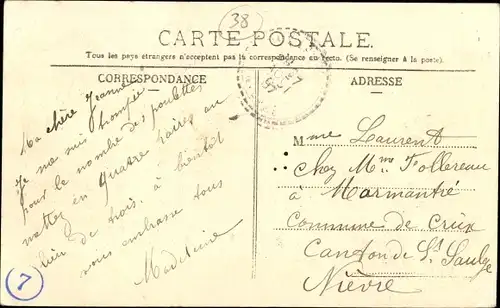 38
CARTE POSTALE.
Tous les pays étrangers n'acceptent pas la correspondance au recto. (Se renseigner à la poste).
CORRESPONDANCE
Ma chère Jeanne
Je me suis trompée
pour le nombre des poulettes
mettez en quatre paires au
lieu de trois. à bientôt
vous embrasse tous
Madeleine
7
ADRESSE
Mme Laurent
chez Mme Follereau
à Marmantré
Commune de Crux
Canton de St Saulge
Nièvre